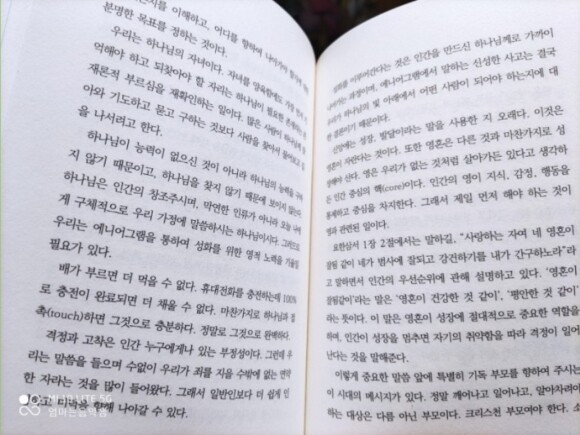 지를 이해하고, 어디를 향하여
분명한 목표를 정하는 것이다.
우리는 하나님의 자녀이다. 자녀를 양육함에도 가장
억해야 하고 되찾아야 할 자리는 하나님이 필요한 존재
재론적 부르심을 재확인하는 일이다. 많은 사람이 하나님께
아와 기도하고 묻고 구하는 것보다 사람을 찾아서 물어보고
을 나서려고 한다.
하나님이 능력이 없으신 것이 아니라 하나님의 능력을 구하
지 않기 때문이고, 하나님을 찾지 않기 때문에 보이지 않는다.
하나님은 인간의 창조주이시며, 막연한 인류가 아니라 오늘 나에
게 구체적으로 우리 가정에 말씀하시는 하나님이시다. 그러므로
우리는 에니어그램을 통하여 성화를 위한 영적 노력을 기울일
필요가 있다.
배가 부르면 더 먹을 수 없다. 휴대전화를 충전하는데 100%
로 충전이 완료되면 더 채울 수 없다. 마찬가지로 하나님과 접
촉(touch)하면 그것으로 충분하다. 정말로 그것으로 완벽하다.
격정과 고착은 인간 누구에게나 있는 부정성이다. 그런데 우
리는 말씀을 들으며 수없이 우리가 죄를 지을 수밖에 없는 연약
한 자라는 것을 많이 들어왔다. 그래서 일반인보다 더 쉽게 인
정하고 미덕을 향해 나아갈 수 있다.
성화를 이루어간다는 것은 인간을 만드신 하나님께로 가까이
나아가는 과정이며, 에니어그램에서 말하는 신성한 사고는 결국
우리가 하나님의 빛 아래에서 어떤 사람이 되어야 하는지에 대
한 결론이기 때문이다.
에는 성장, 발달이라는 말을 사용한 지 오래다. 이것은
영혼이 자란다는 것이다. 또한 영혼은 다른 것과 마찬가지로 성
해야 산다. 영은 우리가 없는 것처럼 살아가든 있다고 생각하
든 인간 중심의 핵(core)이다. 인간의 영이 지식, 감정, 행동을
통제하고 중심을 차지한다. 그래서 제일 먼저 해야 하는 것이
영과 관련된 일이다.
요한삼서 1장 2절에서는 말하길, “사랑하는 자여 네 영혼이
잘됨 같이 네가 범사에 잘되고 강건하기를 내가 간구하노라”라
고 말하면서 인간의 우선순위에 관해 설명하고 있다. ‘네 영혼이
잘됨같이’라는 말은 ‘영혼이 건강한 것 같이’, ‘평안한 것 같이’
라는 뜻이다. 이 말은 영혼이 성장에 절대적으로 중요한 역할을
하며, 인간이 성장을 멈추면 자기의 취약함을 따라 격정이 일어
난다는 것을 말해준다.
이렇게 중요한 말씀 앞에 특별히 기독 부모를 향하여 주시는
이 시대의 메시지가 있다. 정말 깨어나고 일어나고, 알아차려야
하는 대상은 다름 아닌 부모이다. 크리스천 부모여야 한다. 소
Mi 10 LITE 5G
엄마는숲속향